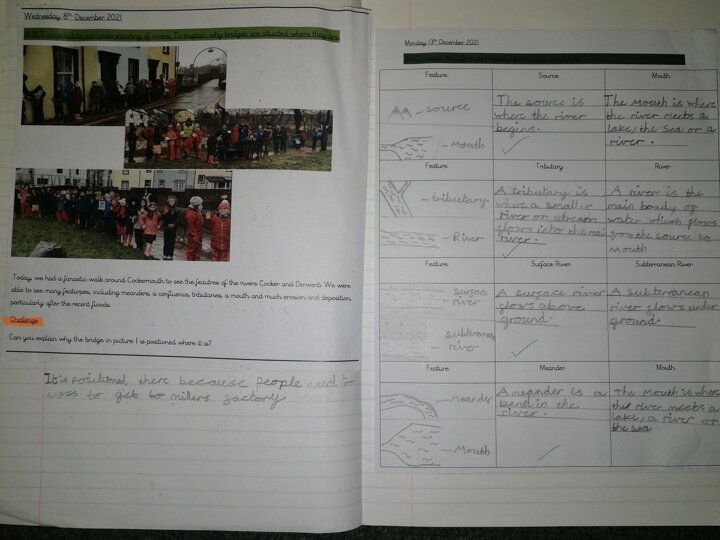 Wednesday 8th December 2021
WALT consolidate our understanding of rivers. To explain why bridges are situated where they are.
Today, we had a fanastic walk around Cockermouth to see the feautres of the rivers Cocker and Derwent. We were
able to see many featurpes, including meanders, a confluence, tributaries, a mouth and much erosion and deposition,
particularly after the recent floods.
Challenge
Can you explain why the bridge in picture 1 is positioned where it is?
It is positiond there because people need to
cross to get to millers factory
Monday 13th December 2021
Feature Source Mouth
source
Mouth
The source is
where the river
begins.
The Mouth is where
the river meets a
lake, the sea or a
river.
Feature Tributary River
tributary
River
A tributary is
where a smaller
river or stream
flows into the main
river.
A river is the
main boady of
water which flows
from the source to
Mouth
Feature Surface River Subterranean River
surface
river
subterranean
river
A surface river
flows above
ground.
A subterranean
river flows under
ground.
Feature Meander Mouth
Meander
Mouth
A meander is a
bend in the
river.
The Mouth is where
the river meets a
lake, a river or
the sea